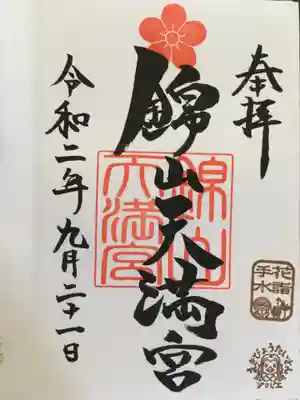 奉拝
錦山天満宮
令和二年九月二十一日
錦山
天満宮
花詣
手水